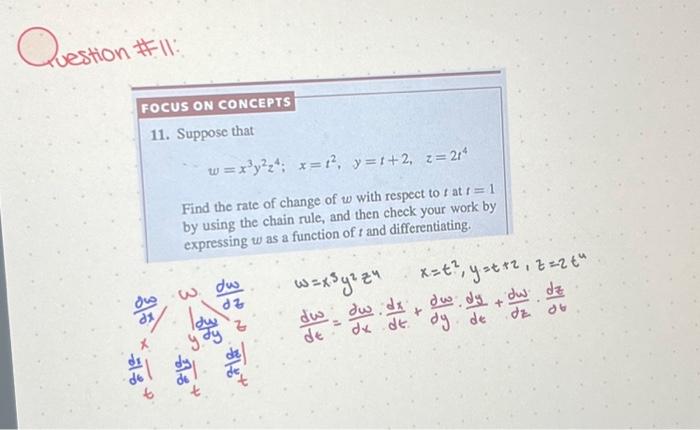 Question #11:
FOCUS ON CONCEPTS
11. Suppose that
w = x³y²z⁴; x = t², y = t + 2, z = 2t⁴
Find the rate of change of w with respect to t at t = 1
by using the chain rule, and then check your work by
expressing w as a function of t and differentiating.
w=x³y²z⁴ x=t², y=t+2, z=2t⁴
dw/dt = dw/dx · dx/dt + dw/dy · dy/dt + dw/dz · dz/dt
w
dw/dx dw/dy dw/dz
x y z
dx/dt dy/dt dz/dt
t t t